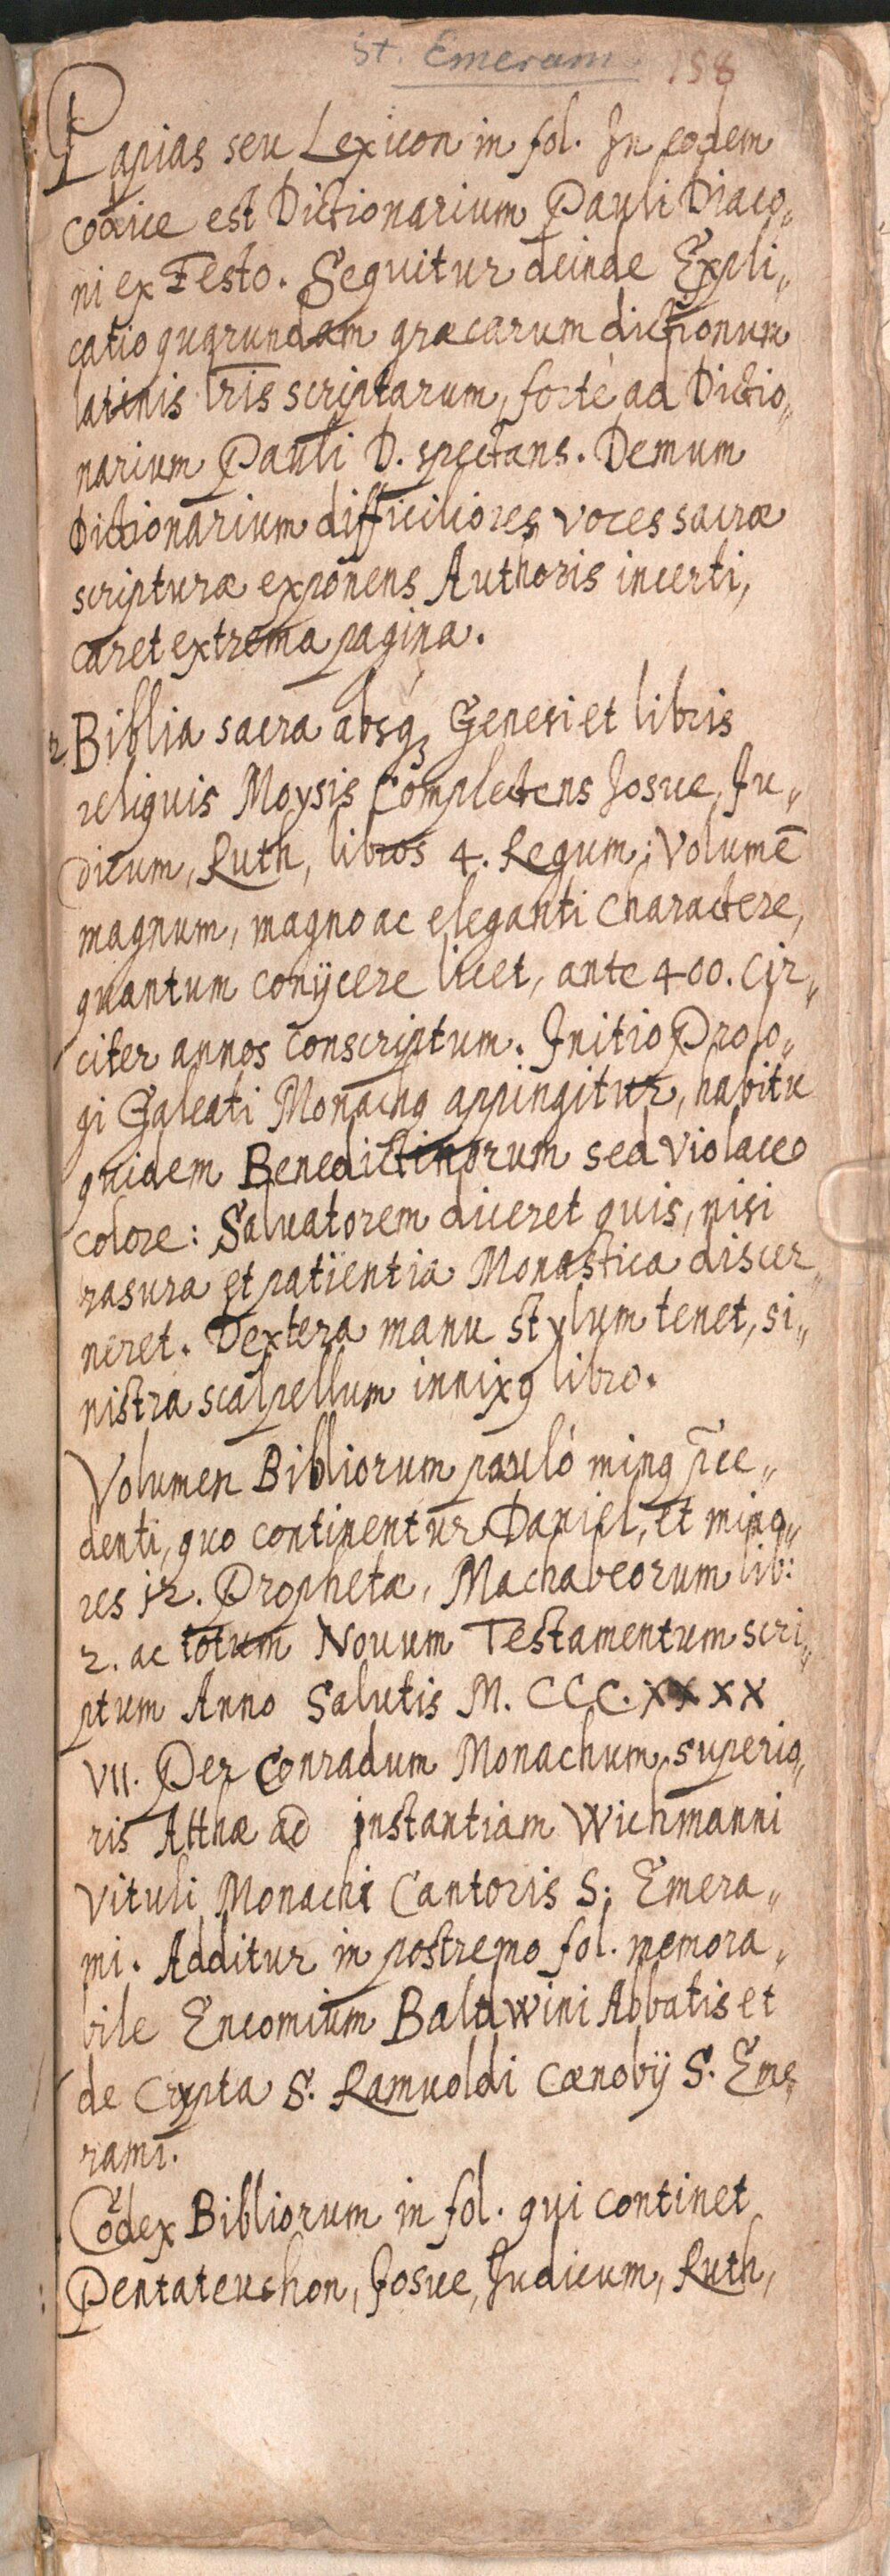 St. Emeram 158
Papias seu Lexicon in fol. In eodem
codice est Dictionarium Pauli Diaco„
ni ex Festo. Sequitur deinde Expli„
catio quarundam græcarum dictionum
latinis lris scriptarum, forté ad Dictio„
narium Pauli D. spectans. Demum
Dictionarium difficiliores voces sacræ
scripturæ exponens Authoris incerti,
caret extrema pagina.
2. Biblia sacra absq; Genesi et libris
reliquis Moysis Complectens Josue, Ju„
dicum, Ruth, libros 4. Regum; Volumē
magnum, magno ac eleganti charactere,
quantum conijcere licet, ante 400. cir„
citer annos conscriptum. Initio Prolo„
gi Galeati Monachꝯ appingitur, habitu
quidem Benedictinorum sed violaceo
colore: Saluatorem diceret quis, nisi
rasura et patientia Monastica discer„
neret. Dextera manu stylum tenet, si„
nistra scalpellum innixꝯ libro.
Volumen Bibliorum pauló minꝯ p̄ce„
denti, quo continentur Daniel, et mino„
res 12. Prophetæ, Machabeorum lib:
2. ac totum Nouum Testamentum scri„
ptum Anno Salutis M. CCC. XXXX
VII. Per Conradum Monachum superio„
ris Althæ ad instantiam Wichmanni
Vituli Monachi Cantoris S. Emera„
mi. Additur in postremo fol. memora„
bile Encomium Baldwini Abbatis et
de Crypta S. Ramuoldi Cœnobij S. Eme„
rami.
Codex Bibliorum in fol. qui continet
Pentateuchon, Josue, Judicum, Ruth,